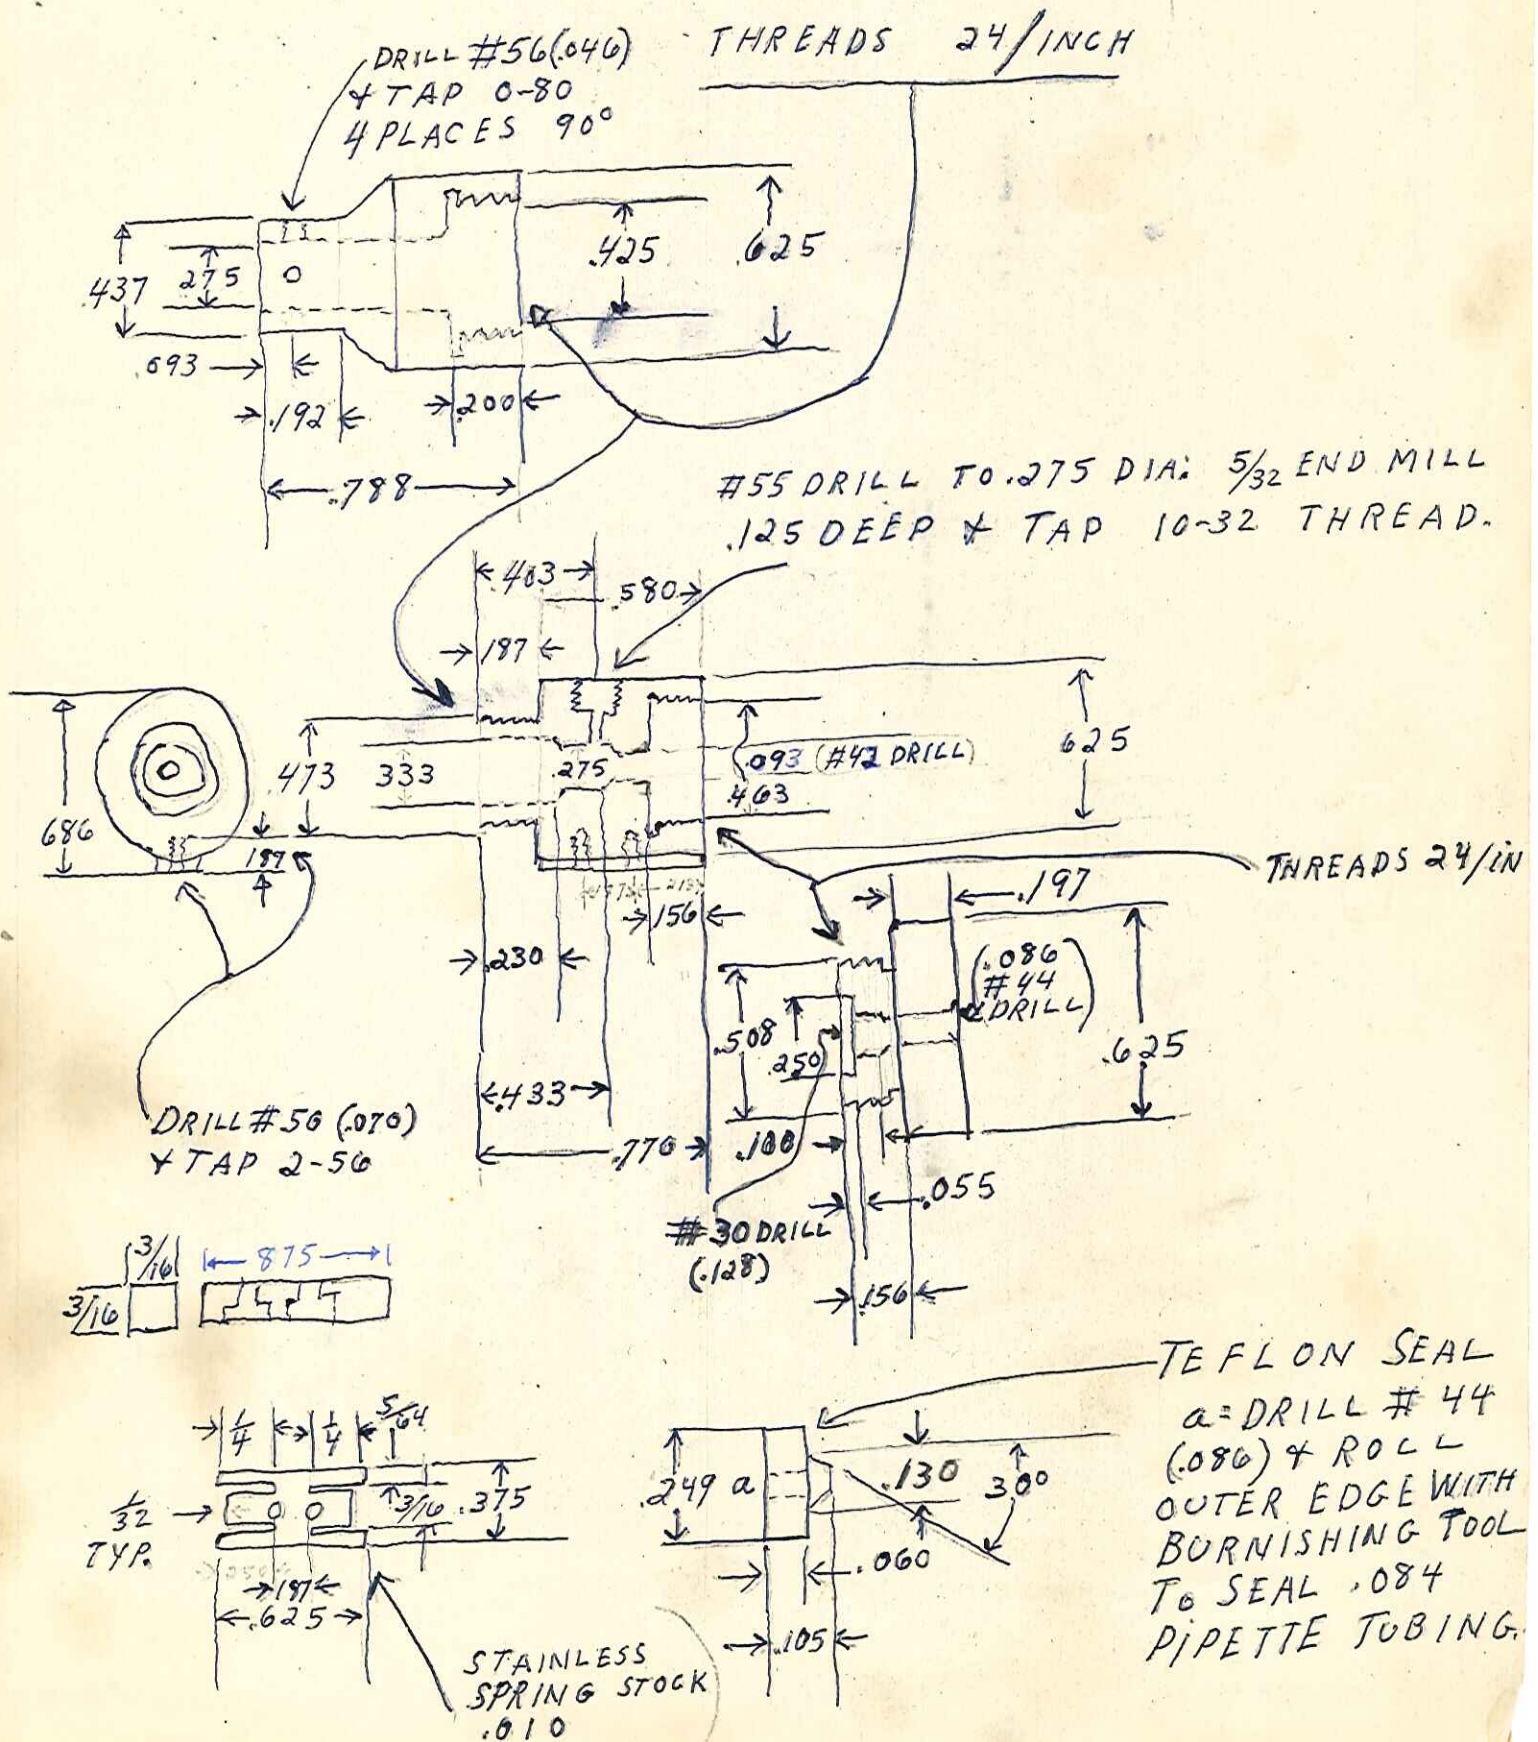 DRILL #56(.046)
& TAP 0-80
4 PLACES 90°
THREADS 24/INCH
.437
.275
.425
.625
.693
.192
.200
.788
#55 DRILL TO .275 DIA. 5/32 END MILL
.125 DEEP & TAP 10-32 THREAD.
.403
.580
.187
.686
.473
.333
.275
.093 (#42 DRILL)
.463
.625
.187
THREADS 24/IN
.156
.197
.230
(.086
#44
DRILL)
.508
.250
.625
.433
.770
.100
.055
DRILL #50 (.070)
& TAP 2-56
#30 DRILL
(.128)
.156
3/16
3/16
875
1/4
1/4
5/64
1/32
TYP.
3/16
.375
.187
.625
STAINLESS
SPRING STOCK
.010
.249
a
.130
30°
.060
.105
TEFLON SEAL
a= DRILL # 44
(.086) & ROLL
OUTER EDGE WITH
BURNISHING TOOL
To SEAL .084
PIPETTE TUBING.